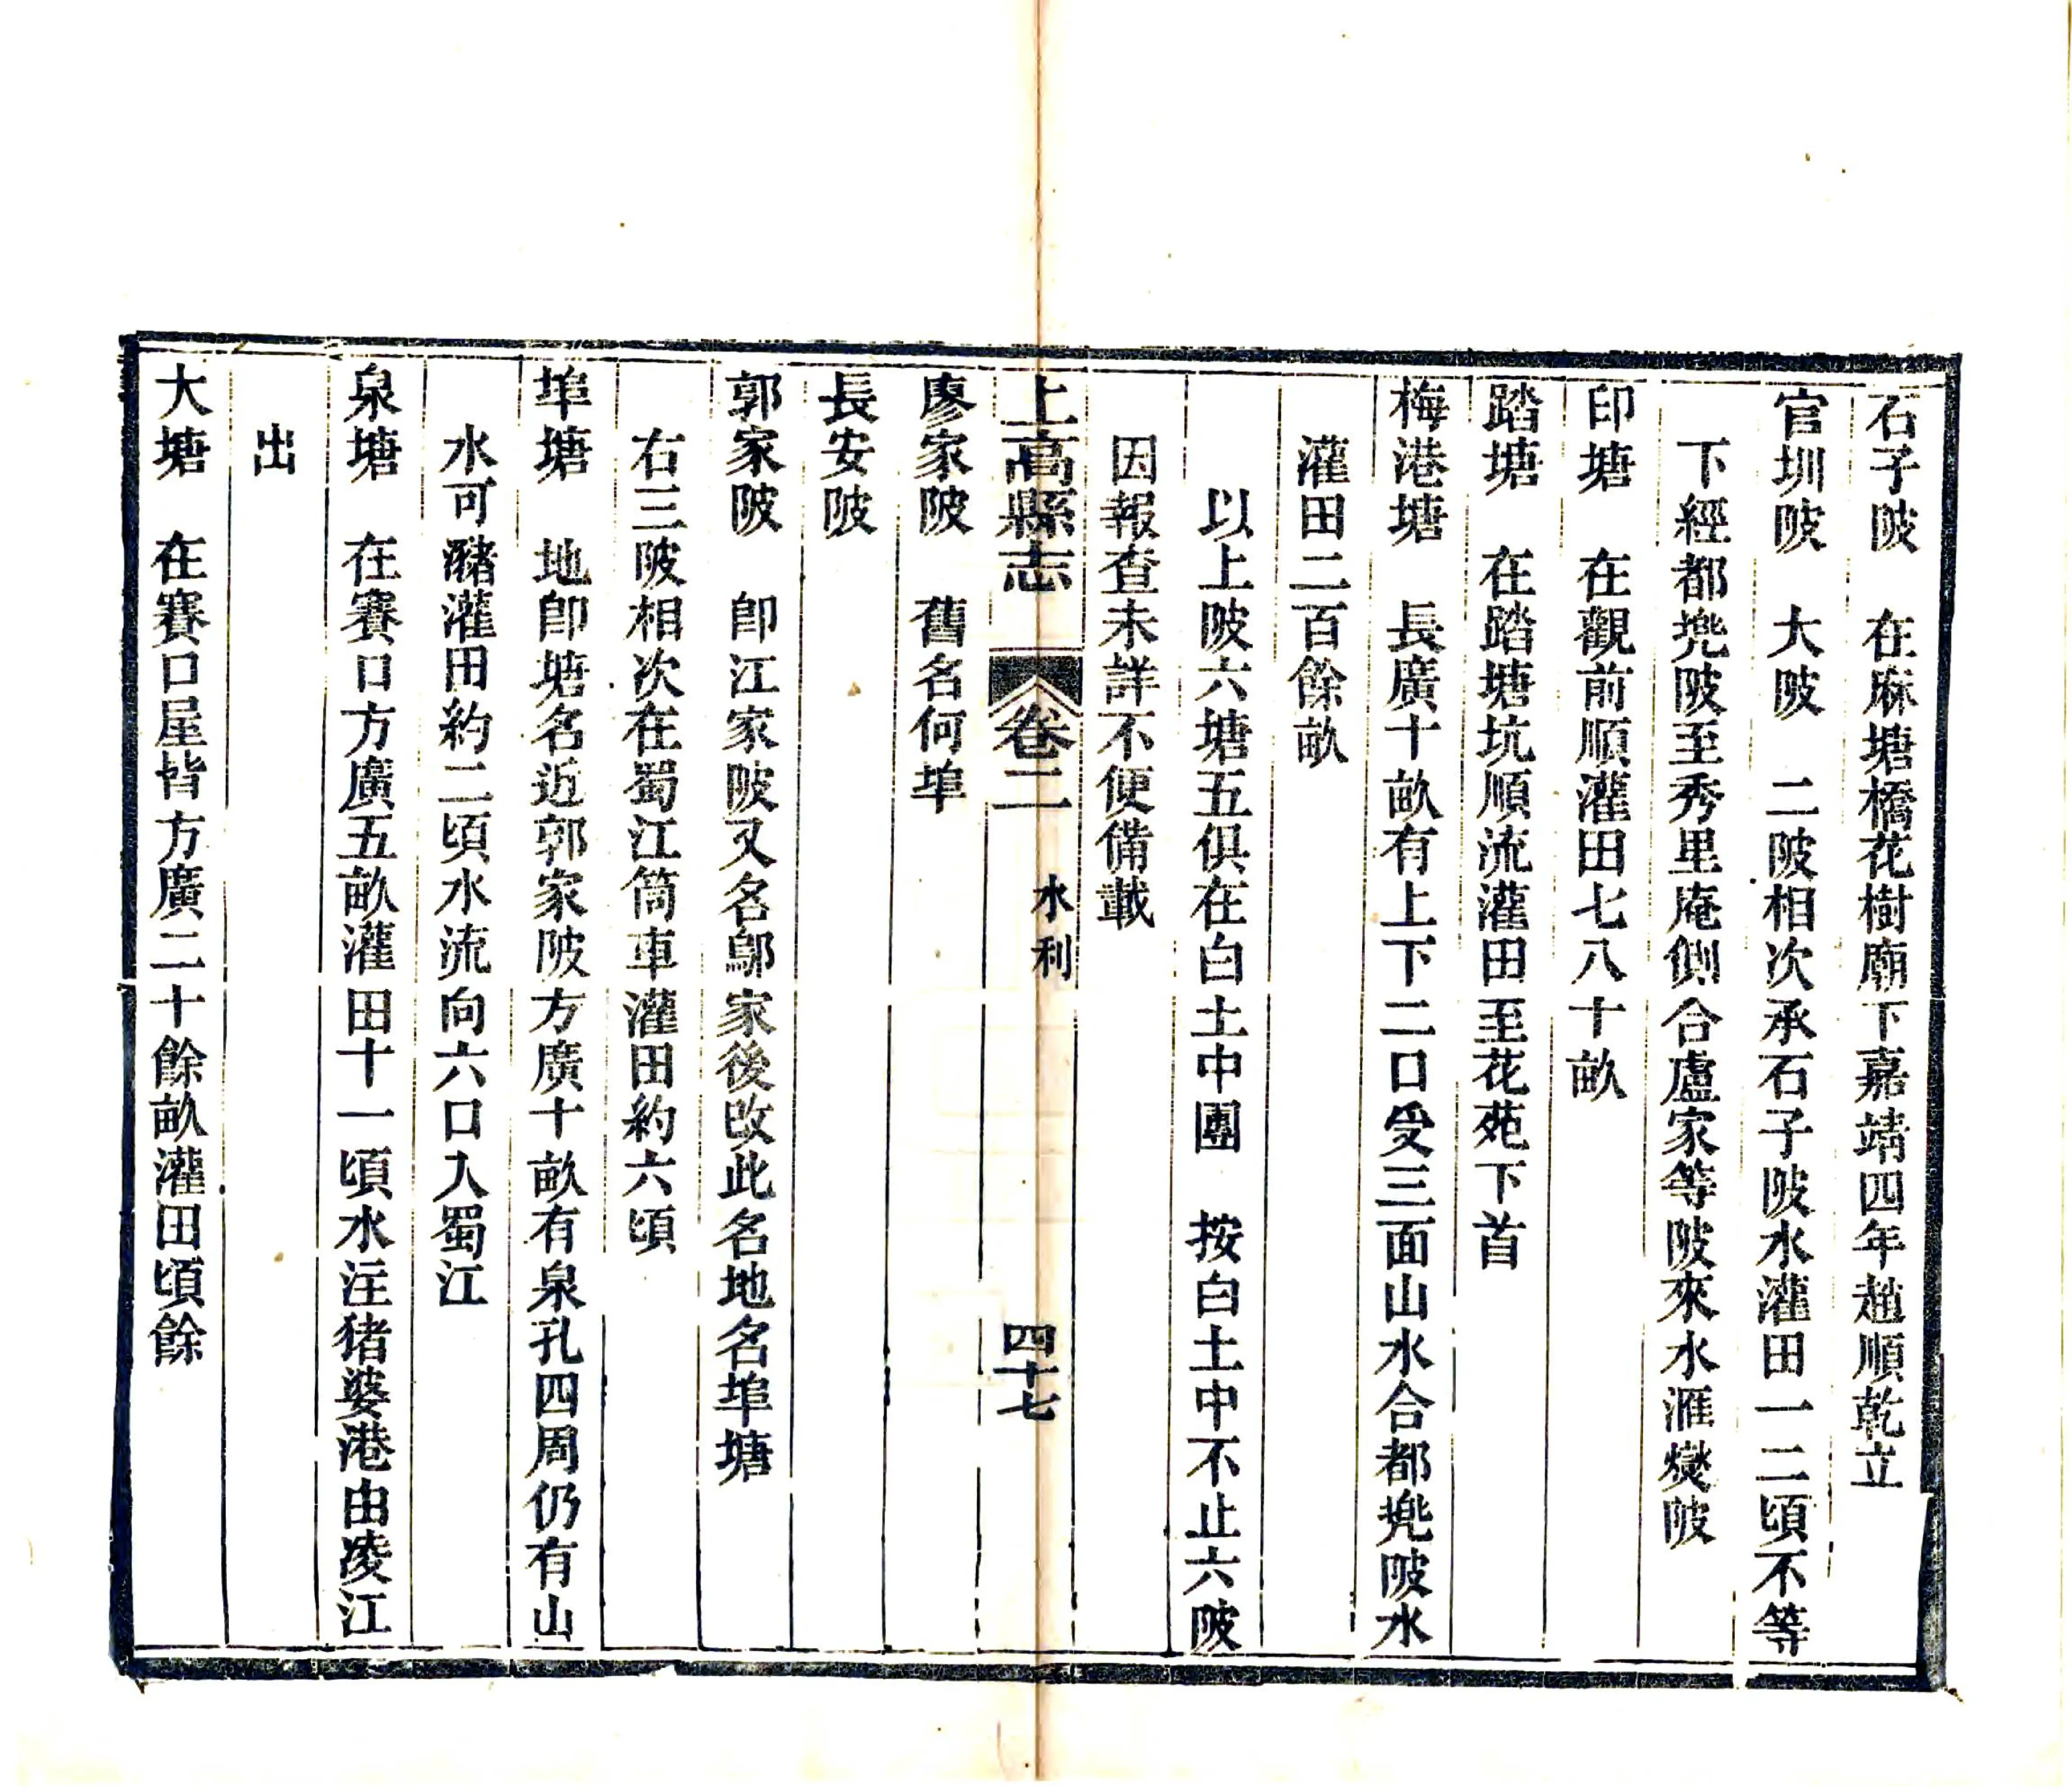 石子陂　在麻塘橋花樹廟下嘉靖四年趙順乾立
官圳陂　大陂　二陂相次承石子陂水灌田一二頃不等
下經都㙋陂至秀里庵側合盧家等陂來水滙燮陂
印塘　在觀前順灌田七八十畝
踏塘　在踏塘坑順流灌田至花苑下首
梅港塘　長廣十畝有上下二口受三面山水合都㙋陂水
灌田二百餘畝
以上陂六塘五俱在白土中團　按白土中不止六陂
因報查未詳不便備載
上高縣志　卷二　水利　四十七
廖家陂　舊名何埠
長安陂
郭家陂　卽江家陂又名鄔家後改此名地名埠塘
右三陂相次在蜀江筒車灌田約六頃
埠塘　地卽塘名近郭家陂方廣十畝有泉孔四周仍有山
水可瀦灌田約二頃水流向六口入蜀江
泉塘　在賽口方廣五畝灌田十一頃水注猪婆港由凌江
出
大塘　在賽口屋背方廣二十餘畝灌田頃餘